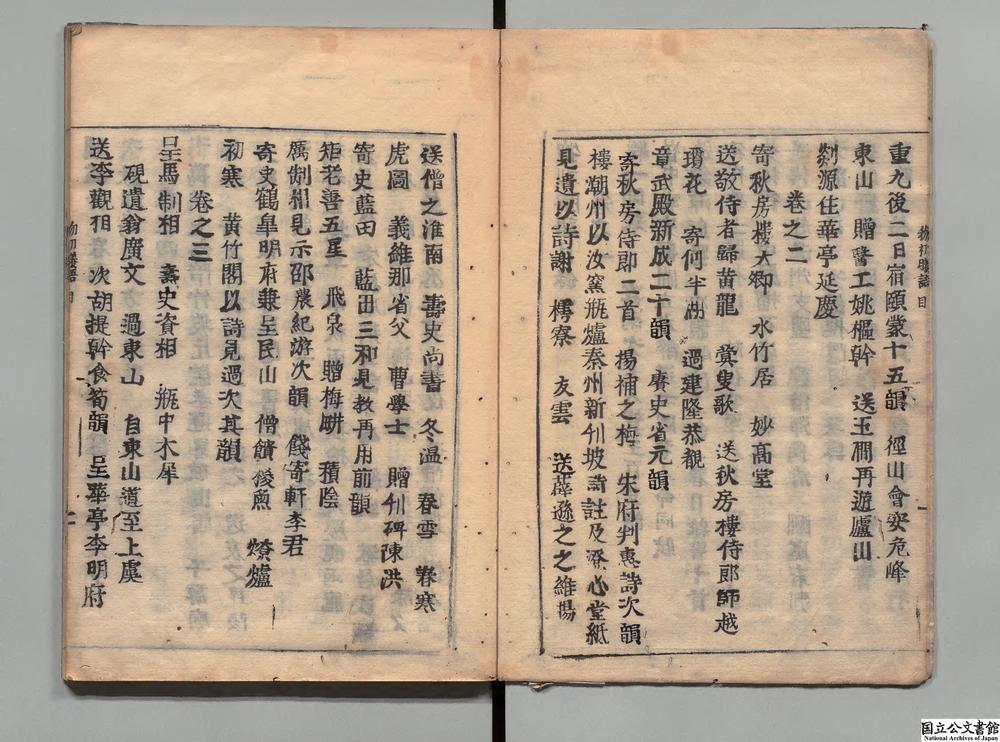 重九後二日宿頤蒙十五韻　徑山會安危峰
東山　贈醫工姚樞幹　送玉㵎再遊廬山
剡源住華亭延慶
卷之二
寄秋房樓大卿　水竹居　妙高堂
送敬侍者歸黃龍　糞叟歌　送秋房樓侍郎師越
瓊花　寄何半湖　過建隆恭覩
章武殿新成二十韻　賡史省元韻
寄秋房侍郎二首　楊補之梅　朱府判惠詩次韻
樓潮州以汝窯瓶爐秦州新刊坡詩註及澄心堂紙
見遺以詩謝　樗寮　友雲　送薛遜之之維揚
送僧之淮南　壽史尚書　冬溫　春雪　春寒
虎圖　義維那省父　曹學士　贈刊碑陳洪
寄史藍田　藍田三和見教再用前韻
矩老善五星　飛泉　贈梅畊　積陰
厲制相見示邵農紀游次韻　餞寄軒李君
寄史鶴皋明府兼呈民山　僧饋梭魚　燎爐
初寒　黃竹閣以詩見過次其韻
卷之三
呈馬制相　壽史資相　瓶中木犀
硯遺翁廣文　過東山　自東山道至上虞
送李觀相　次胡提幹食筍韻　呈華亭李明府
國立公文書館
National Archives of Japan